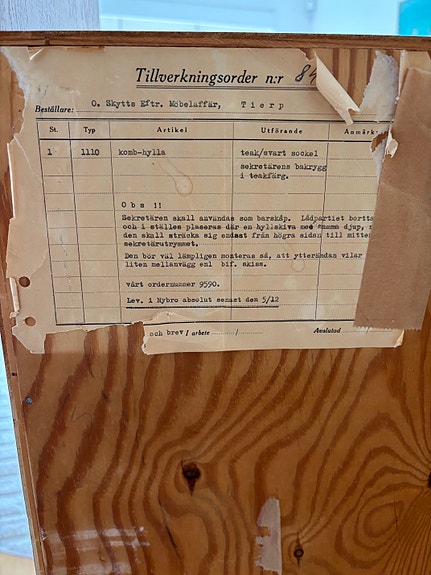 Tillverkningsorder n:r 84
Beställare: O. Skytts Eftr. Möbelaffär, Tierp
St. Typ Artikel Utförande Anmärk
1 1110 komb-hylla teak/svart sockel
sekretärens bakrygg
i teakfärg.
O b s !!
Sekretären skall användas som barskåp. Lådpartiet bortta
och i ställes plaseras där en hyllskiva med samma djup,
den skall sträcka sig endast från högra sidan till mitten
sekretärutrymmet.
Den bör väl lämpligen monteras så, att ytterändan vilar
liten mellanvägg enl bif. skiss.
vårt ordernummer 9590.
Lev. i Nybro absolut senast den 5/12
och brev / arbete / Avslutad